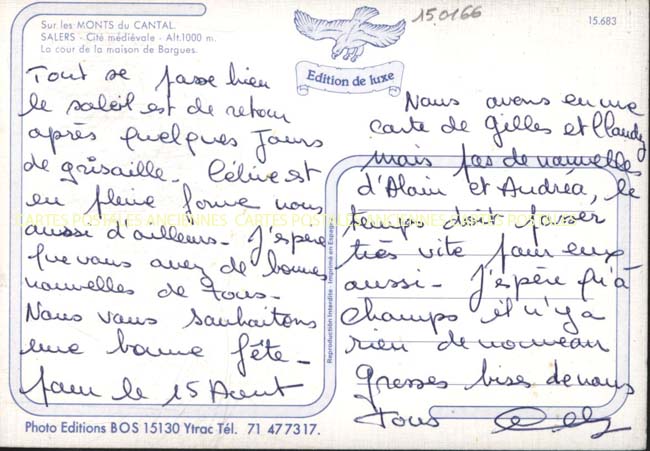 Sur les MONTS du CANTAL.
SALERS - Cité médiévale - Alt.1000 m.
La cour de la maison de Bargues.
150166
15.683
Edition de luxe
Tout se passe bien
le soleil est de retour
après quelques jours
de grisaille. Céline est
en pleine forme nous
aussi d'ailleurs - j'espère
que vous avez de bonnes
nouvelles de tous -
Nous vous souhaitons
une bonne fête -
pour le 15 Août
Nous avons eu une
carte de Gilles et
mais pas de nouvelles
d'Alain et Andréa, le
temps doit passer
très vite pour eux
aussi - j'espère qu'à
champs il n'y a
rien de nouveau
Grosses bises de nous
Tous
CARTES POSTALES ANCIENNES CARTES POSTALES ANCIENNES
Reproduction Interdite - Imprimé en Espagne
Photo Editions BOS 15130 Ytrac Tél. 71 477317.